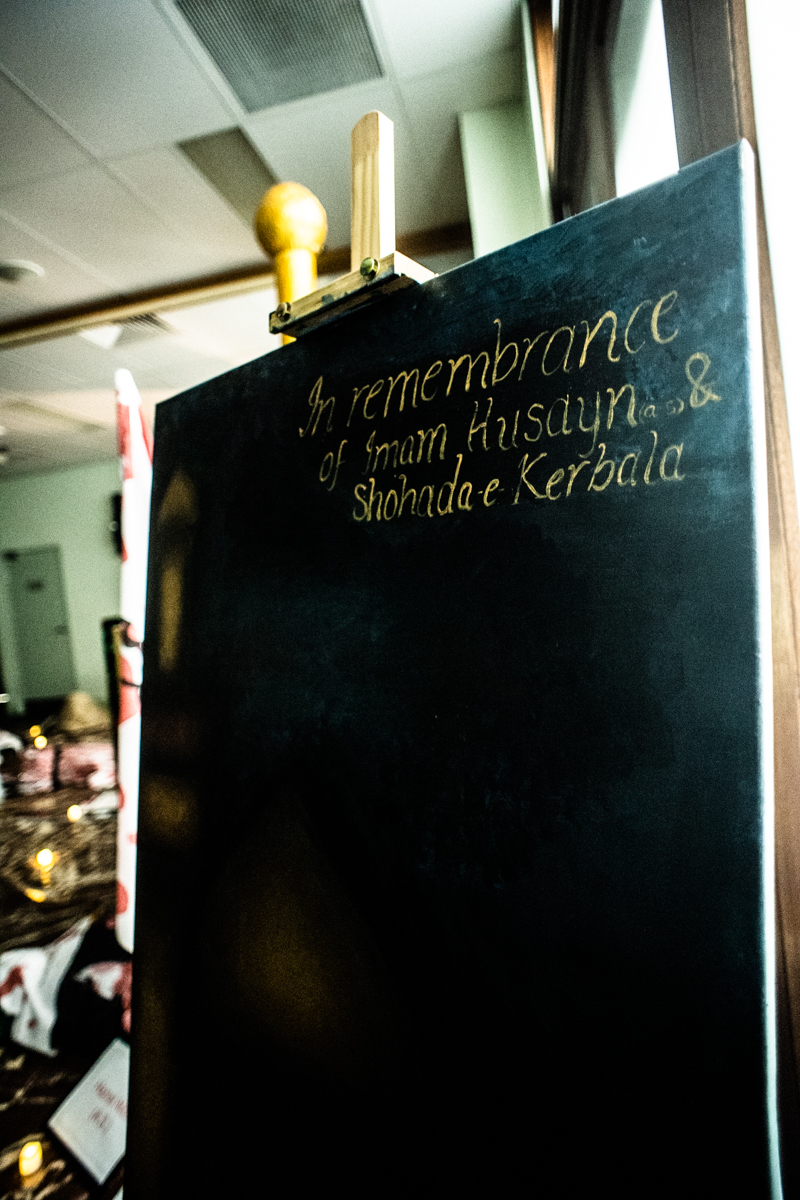 In remembrance
of Imam Husayn (a.s) &
Shohada-e-Kerbala